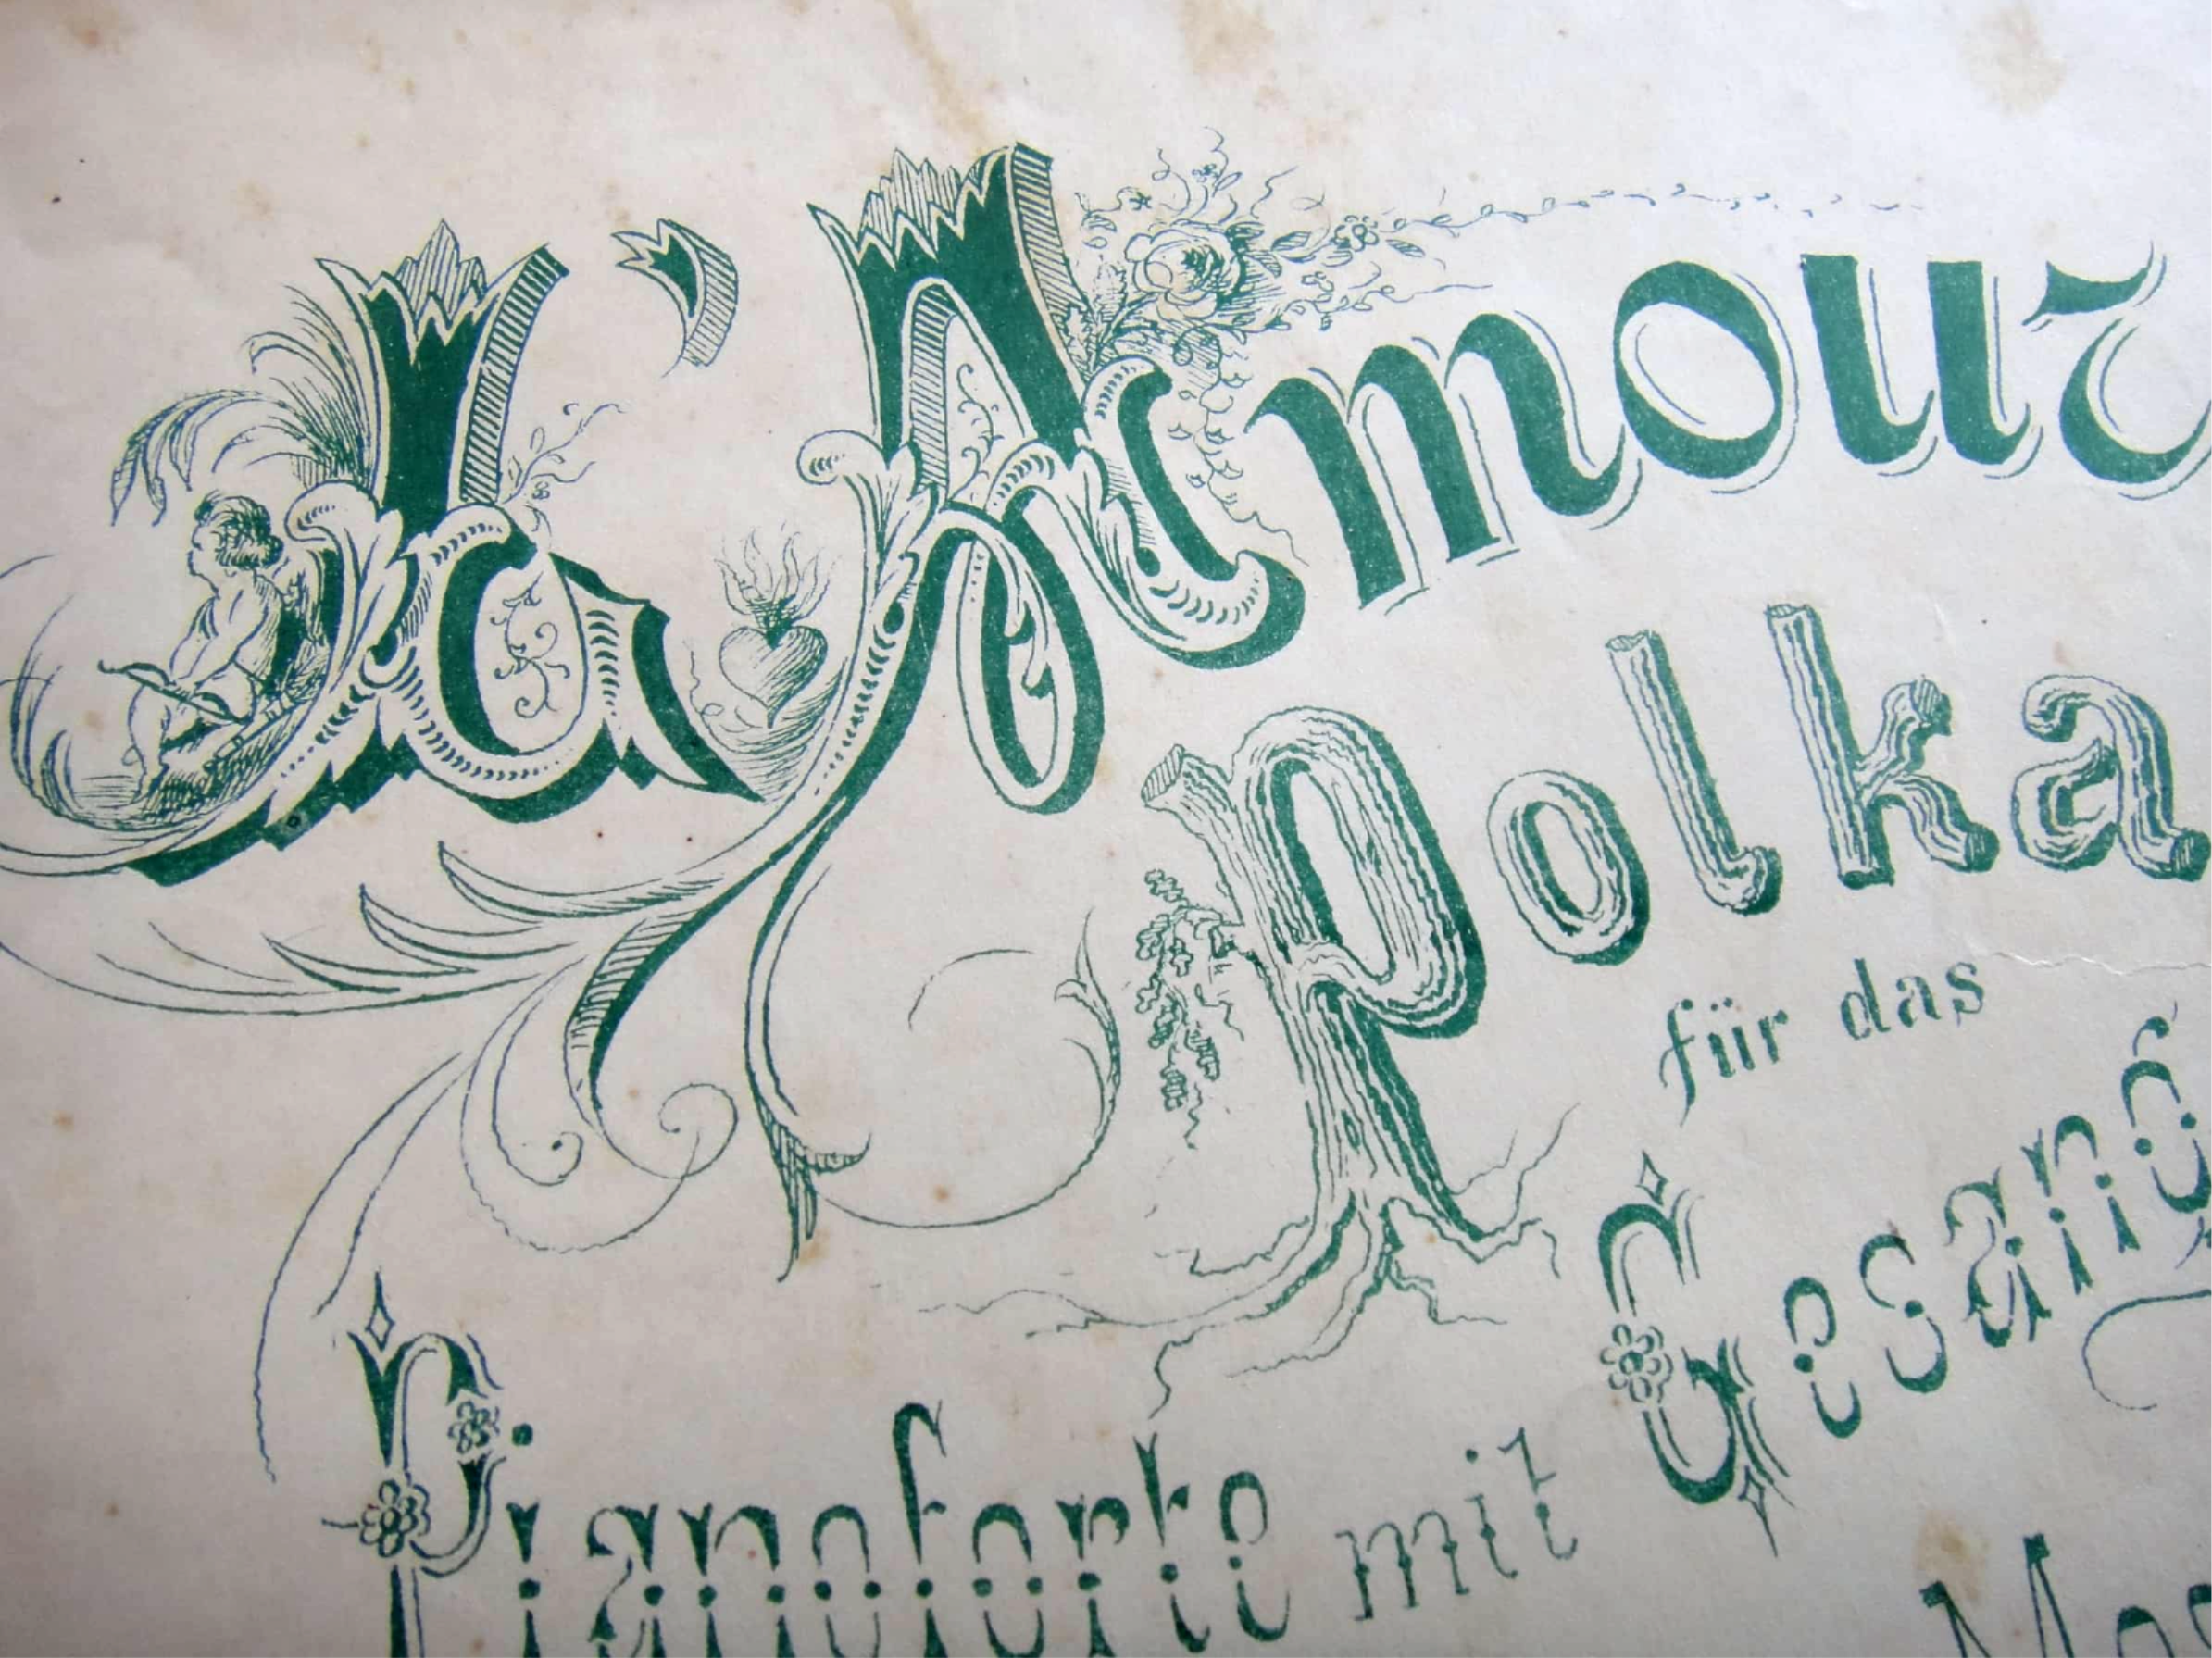 L'Amour
Polka
für das
Pianoforte mit Gesang